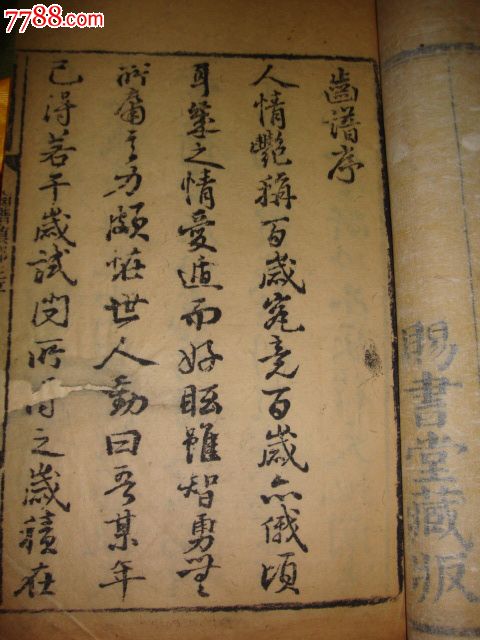 7788.com
齒譜序
人情艷稱百歲究竟百歲亦俄頃
耳之情愛遁而好眩雖智勇無
所庸之力頗恠世人動曰吾某年
已得若干歲試問所得之歲積在
賜書堂藏版
7788.com